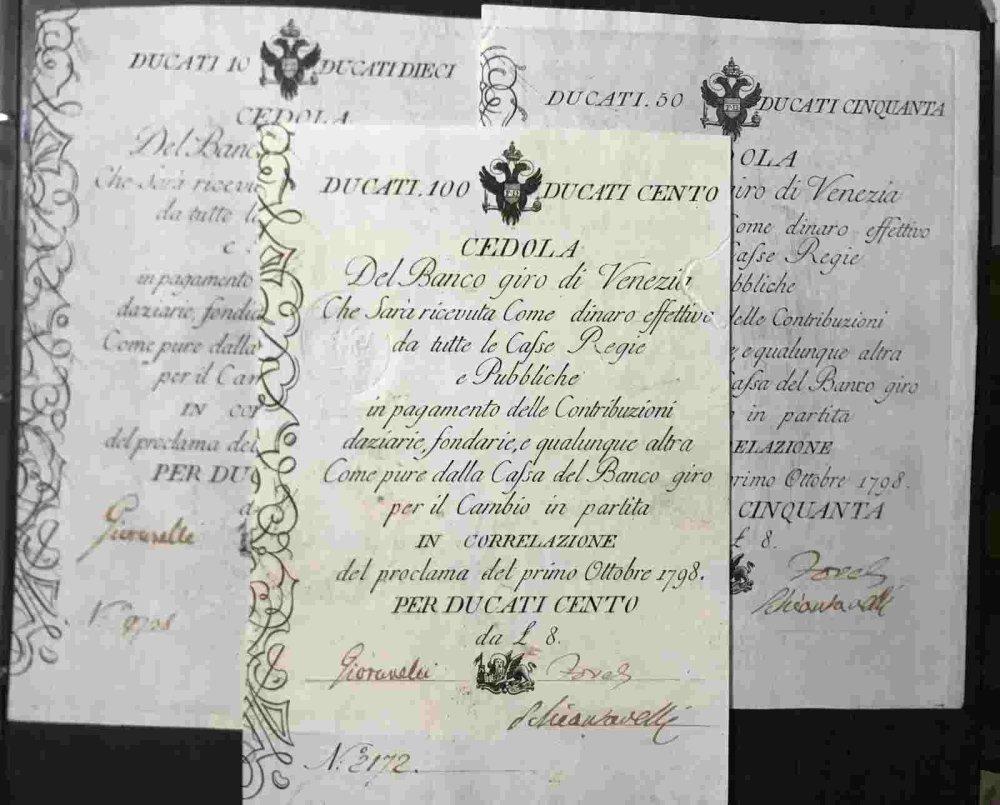 DUCATI 10 DUCATI DIECI
CEDOLA
Del Banc
Che Sarà ricevu
da tutte le
e
in pagamento
daziarie, fondia
Come pure dalla
per il Cam
IN COR
del proclama del
PER DUC
d
Giovanelli
N.º
DUCATI. 50 DUCATI CINQUANTA
DOLA
giro di Venezia
Come dinaro effettivo
Casse Regie
bbliche
delle Contribuzioni
e qualunque altra
Cassa del Banco giro
in partita
RELAZIONE
primo Ottobre 1798.
CINQUANTA
£ 8.
Schiantavelli
DUCATI. 100 DUCATI CENTO
CEDOLA
Del Banco giro di Venezia
Che Sarà ricevuta Come dinaro effettivo
da tutte le Casse Regie
e Pubbliche
in pagamento delle Contribuzioni
daziarie, fondarie, e qualunque altra
Come pure dalla Cassa del Banco giro
per il Cambio in partita
IN CORRELAZIONE
del proclama del primo Ottobre 1798.
PER DUCATI CENTO
da £ 8.
Giovanelli
Schiantavelli
N.º 3172.